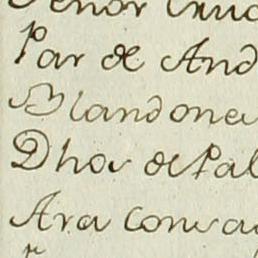 Par de And
Blandones
Dhos de Pal
Ara consa